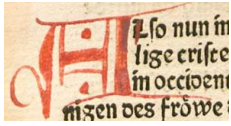 Alſo nun in
lige criſte
in occiden
nigen des fröwe